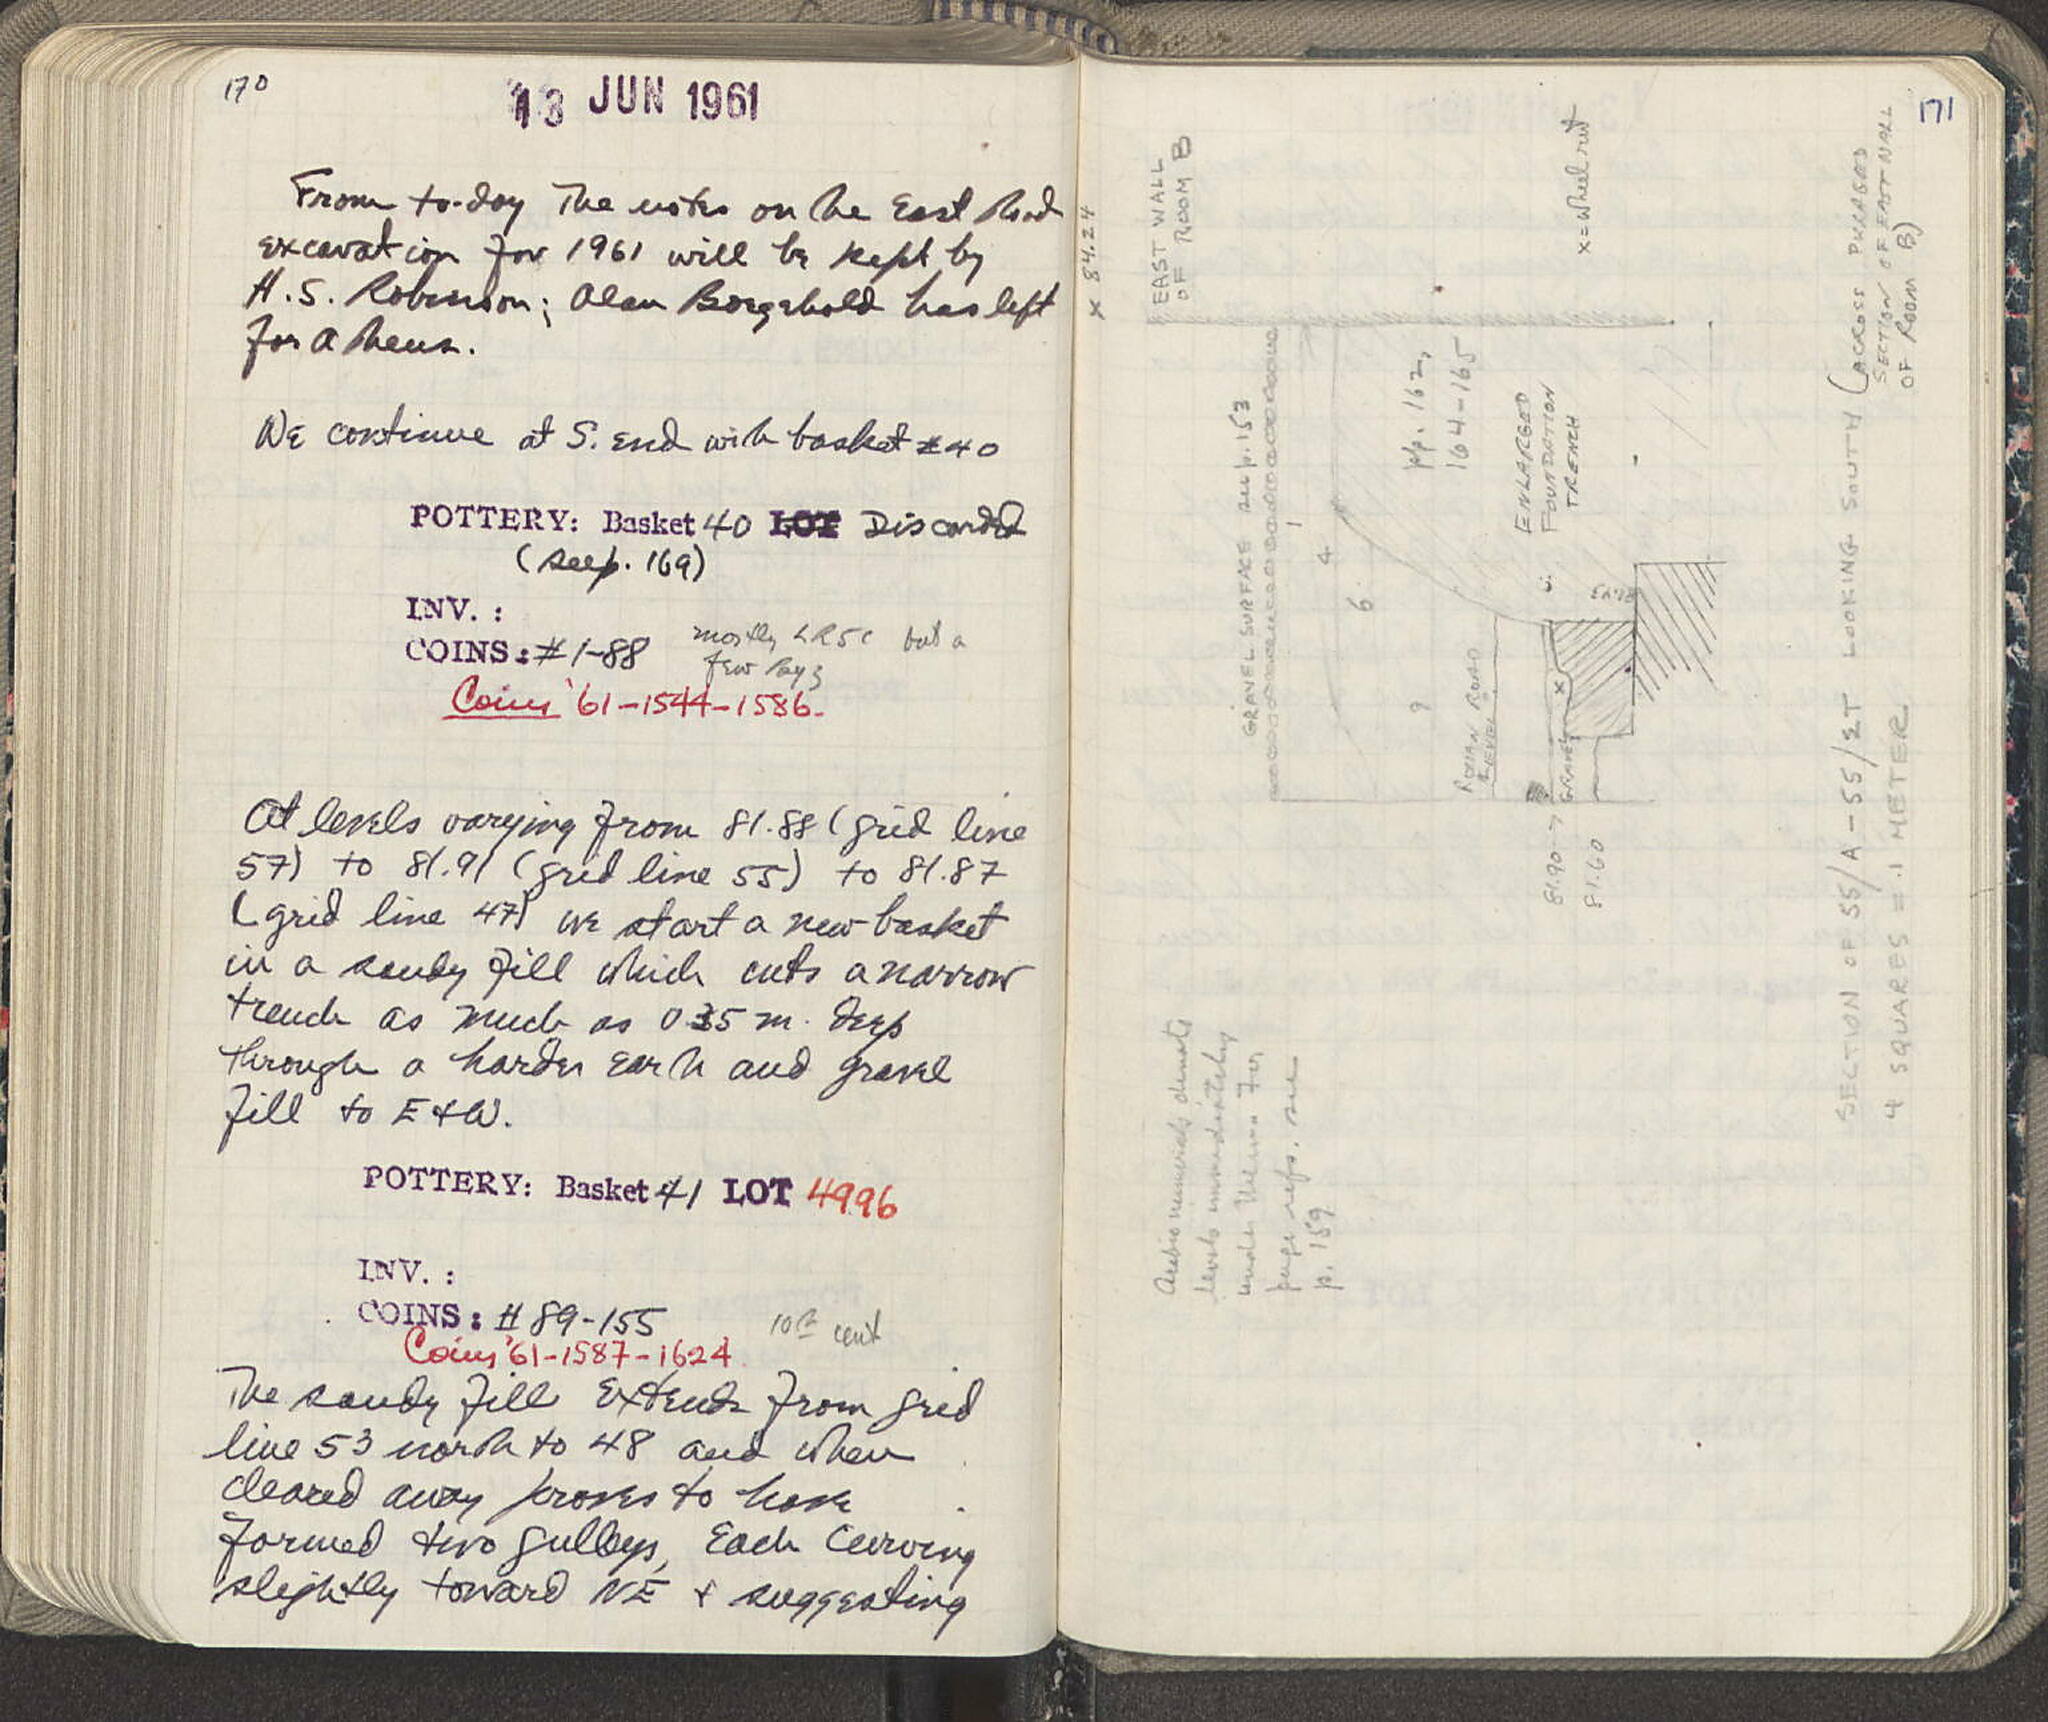 170
13 JUN 1961
From to-day The notes on the East Road
excavation for 1961 will be kept by
H.S. Robinson; Alan Boegehold has left
for Athens.
We continue at S. end with basket #40
POTTERY: Basket 40 LOT Discarded
(see p. 169)
INV. :
COINS: #1-88 mostly LR5C but a
few Byz
Coins '61-1544-1586.
At levels varying from 81.88 (grid line
57) to 81.91 (grid line 55) to 81.87
(grid line 47) we start a new basket
in a sandy fill which cuts a narrow
trench as much as 0.35 m. deep
through a harder earth and gravel
fill to E+W.
POTTERY: Basket 41 LOT 4996
INV. :
COINS: # 89-155 10th cent
Coins '61-1587-1624.
The sandy fill extends from grid
line 53 north to 48 and when
cleared away proves to have
formed two gulleys, each curving
slightly toward NE + suggesting
171
x 84.24
EAST WALL
OF ROOM B
x = wheel rut
GRAVEL SURFACE see p. 153
1
4
6
pp. 162,
164-165
9
ROMAN ROAD
LEVEL
ENLARGED
FOUNDATION
TRENCH
x
GRAVEL
81.90 →
81.60
SECTION OF 55/A - 55/ΣT LOOKING SOUTH (ACROSS PRESERVED
SECTION OF EAST WALL
OF ROOM B)
4 SQUARES = .1 METER
Arabic numerals denote
levels immediately
under them. For
page refs. see
p. 159